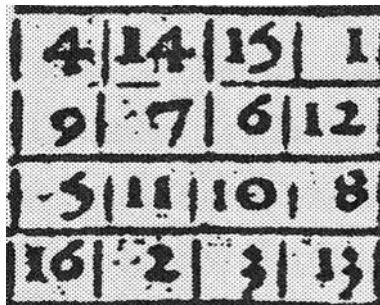 4 14 15 1
9 7 6 12
5 11 10 8
16 2 3 13